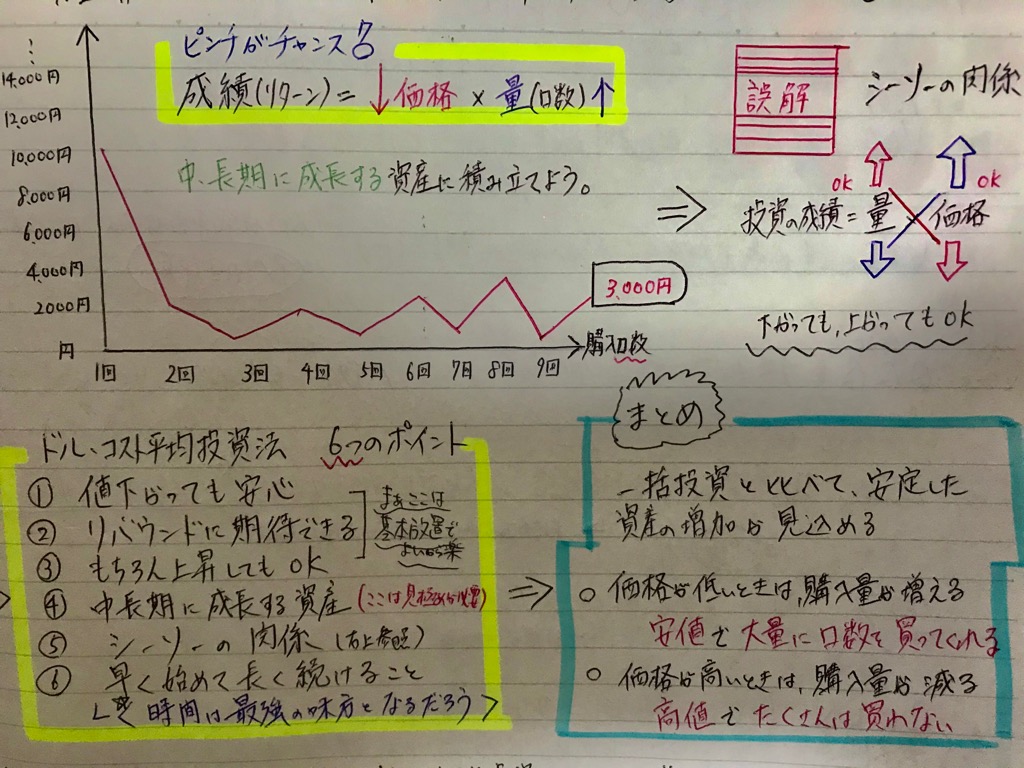 ピンチがチャンス
成績(リターン)=↓価格×量(口数)↑
中、長期に成長する資産に積み立てよう。
14,000円
12,000円
10,000円
8,000円
6,000円
4,000円
2000円
円
1回 2回 3回 4回 5回 6回 7回 8回 9回
購入回数
3,000円
誤解
シーソーの関係
OK OK
投資の成績=量 価格
下がっても,上がってもOK
ドル・コスト平均投資法 6つのポイント
① 値下がっても安心
② リバウンドに期待できる
③ もちろん上昇してもOK
まぁここは
基本放置で
よいから楽
④ 中長期に成長する資産(ここは見極めが必要)
⑤ シーソーの関係(右上参照)
⑥ 早く始めて長く続けること
時間は最強の味方となるだろう
まとめ
一括投資と比べて、安定した
資産の増加が見込める
○ 価格が低いときは,購入量が増える
安値で大量に口数を買ってくれる
○ 価格が高いときは、購入量が減る
高値でたくさんは買わない